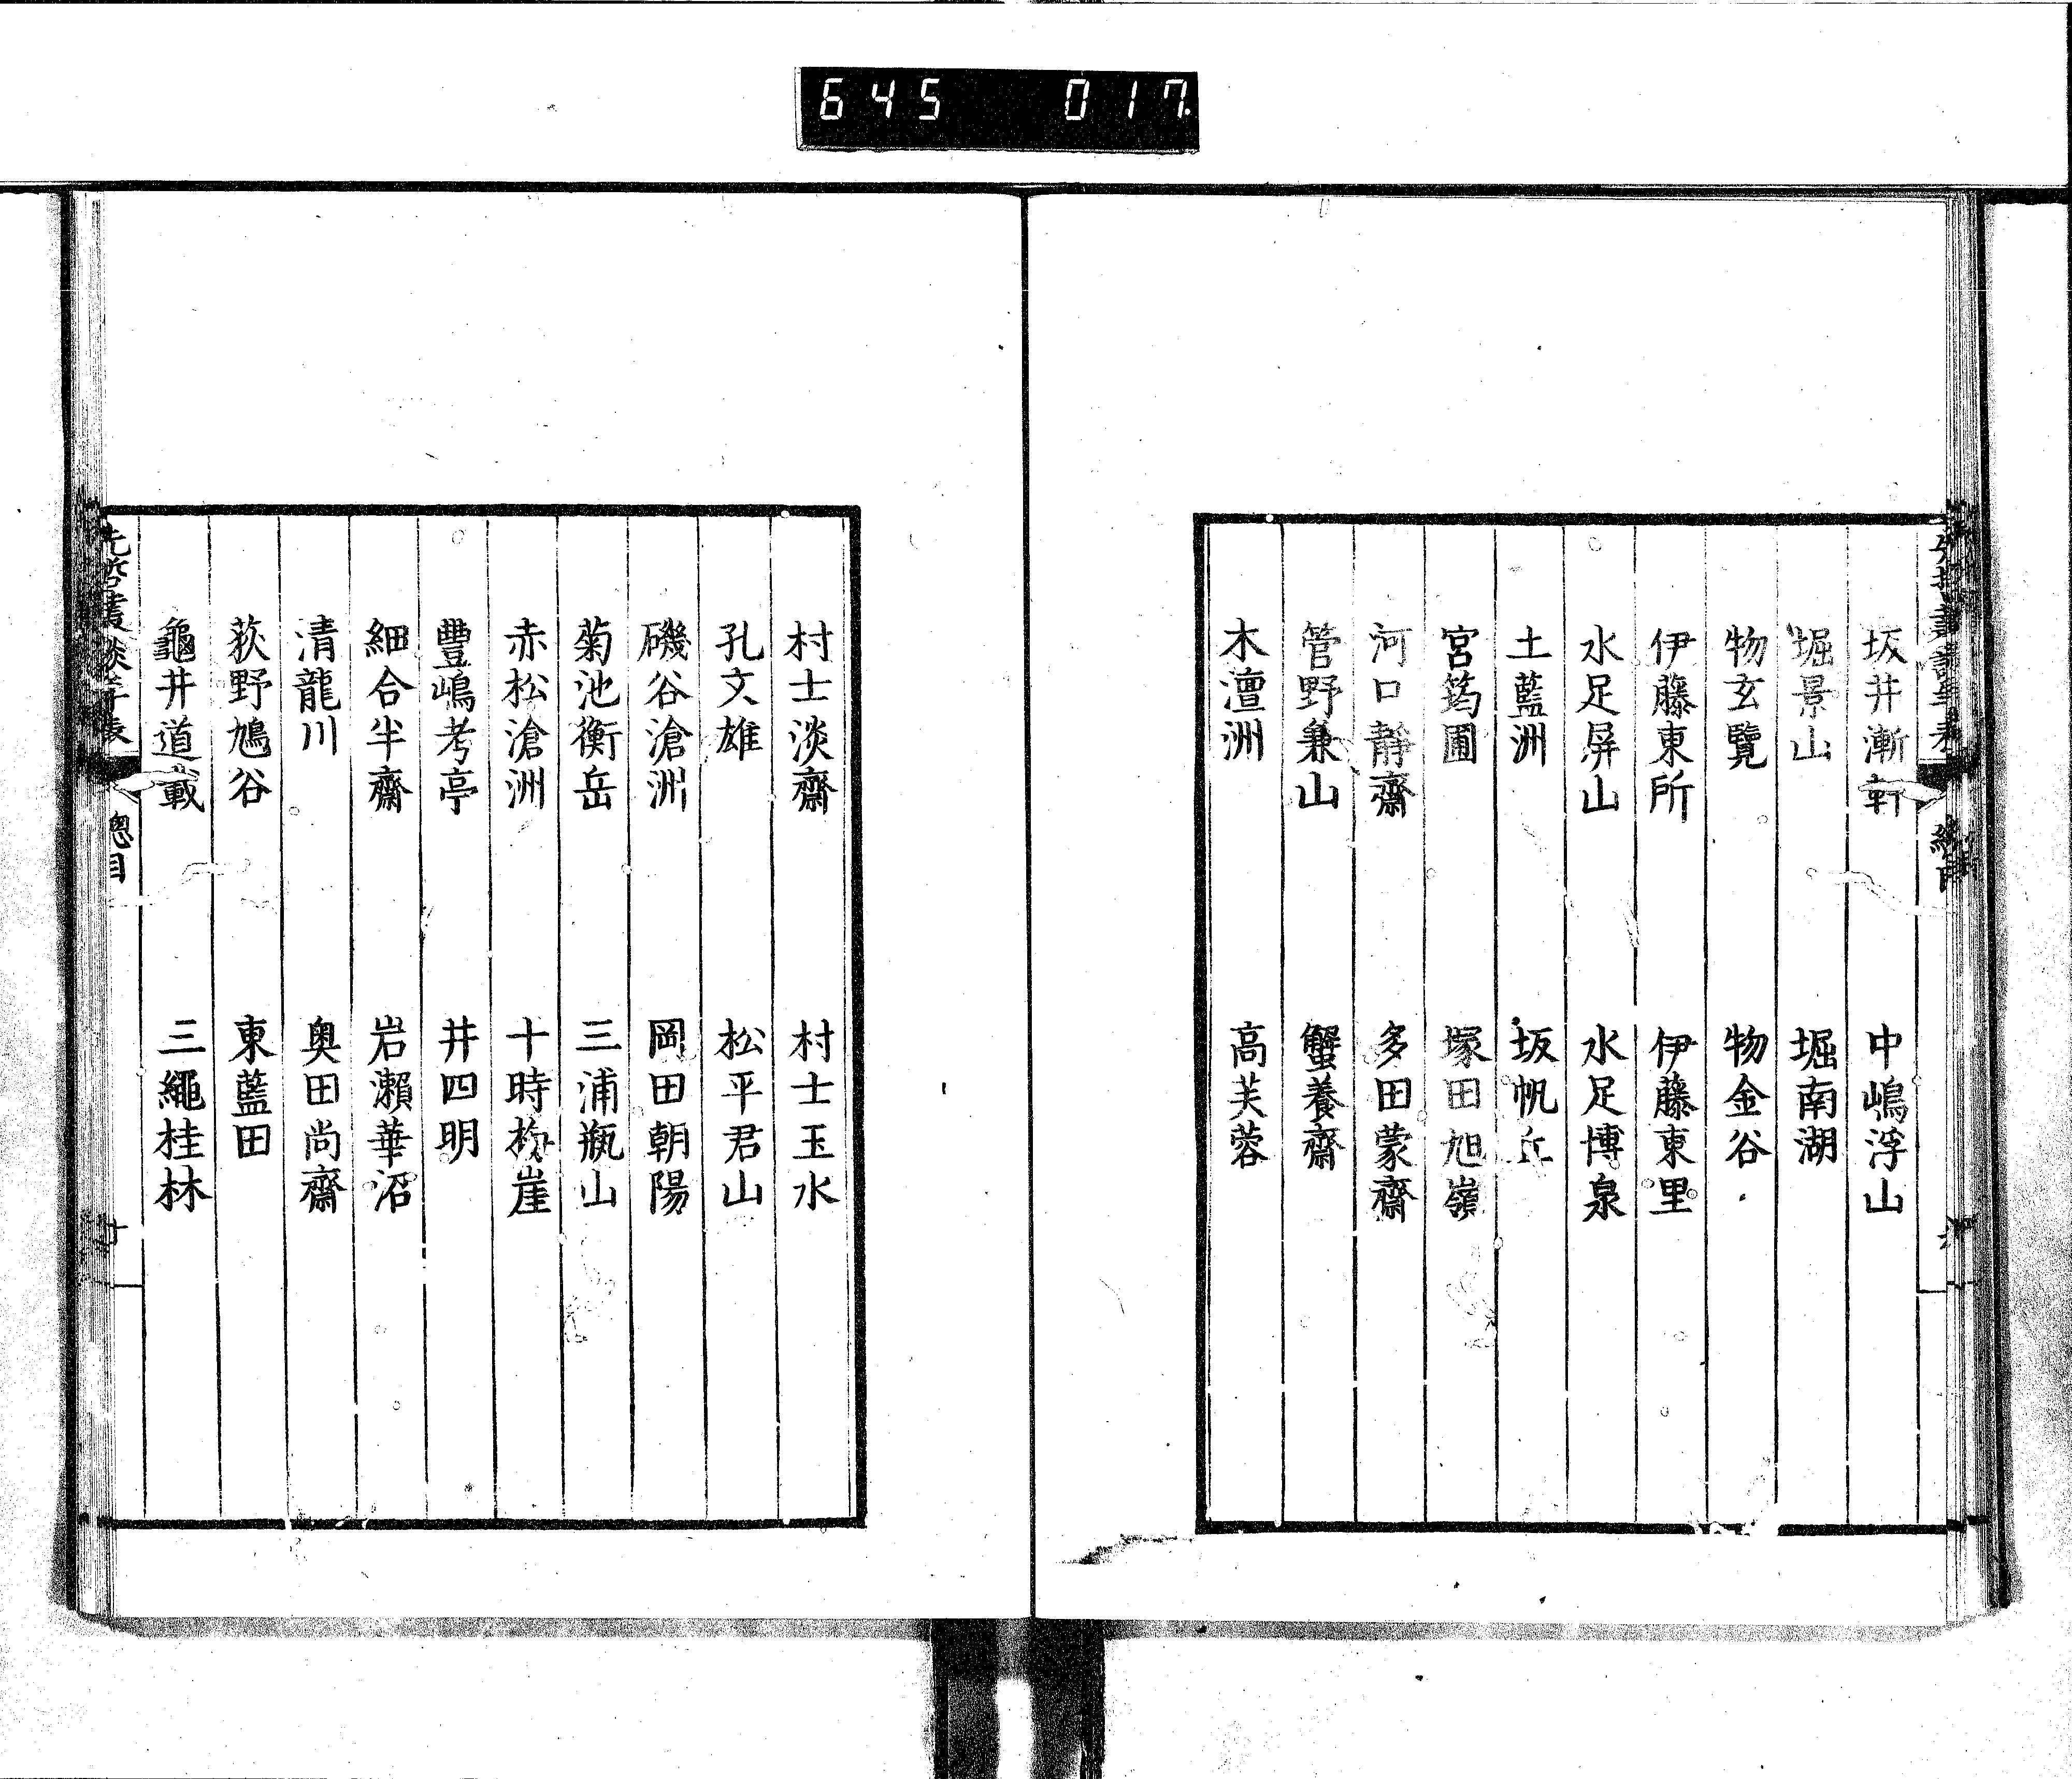 645 017
坂井漸軒 中嶋浮山
堀景山 堀南湖
物玄覽 物金谷
伊藤東所 伊藤東里
水足屏山 水足博泉
土藍洲 坂帆丘
宮筠圃 塚田旭嶺
河口靜齋 多田蒙齋
管野兼山 蟹養齋
木澶洲 高芙蓉
村士淡齋 村士玉水
孔文雄 松平君山
磯谷滄洲 岡田朝陽
菊池衡岳 三浦瓶山
赤松滄洲 十時梅崖
豐嶋考亭 井四明
細合半齋 岩瀨華沼
清龍川 奧田尚齋
荻野鳩谷 東藍田
龜井道載 三繩桂林
總目